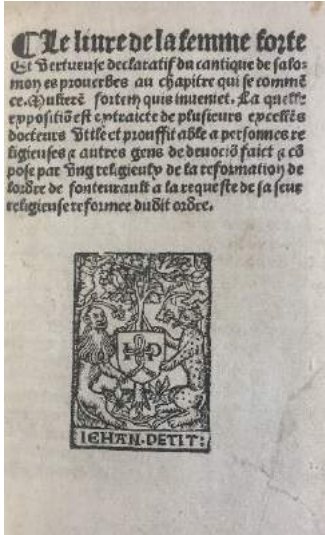 ⁋Le liure de la femme forte
Et Vertueuse declaratif du cantique de salo-
mon es prouerbes au chapitre qui se commẽ
ce. Mulierẽ fortem quis inueniet. La quelle
expositiõ est extraicte de plusieurs excellẽs
docteurs Vtile et prouffit able a personnes re
ligieuses & autres gens de deuociõ faict & cõ
pose par Vng religieulx de la reformation de
lordre de fonteurault a la requeste de sa seur
religieuse reformee dudit ordre.
IEHAN. PETIT: